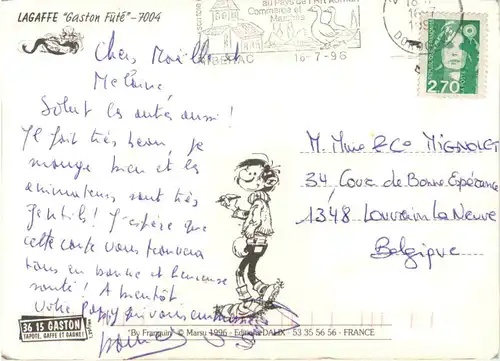 LAGAFFE "Gaston Fûté" – 7004
au Pays de l'Art Roman
Commerce et
Marchés
RIBERAC 16-7-96
RÉPUBLIQUE FRANÇAISE
2,70
LA POSTE
Chers Maëlle et
Mélanie,
Salut les autres aussi !
Il fait très beau, je
mange bien et les
animateurs sont très
gentils ! J'espère que
cette carte vous trouvera
tous en bonne et heureuse
santé ! A bientôt
Votre Poppy qui vous
M. Mme & Co Mignolet
34, Cour de Bonne Espérance
1348 Louvain La Neuve
Belgique
36 15 GASTON
TAPOTE, GAFFE ET GAGNE !
"By Franquin" © Marsu 1996 - Editions DALIX - 53 35 56 56 - FRANCE